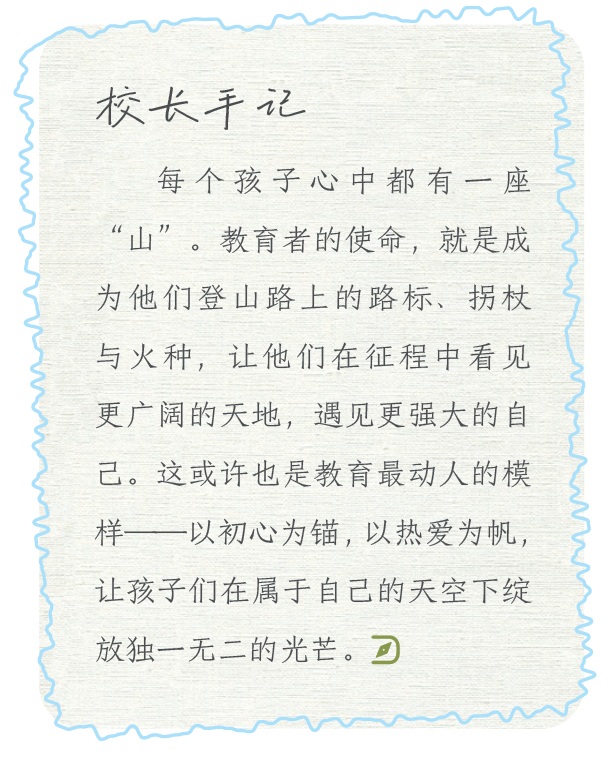 校长手记
每个孩子心中都有一座
“山”。教育者的使命，就是成
为他们登山路上的路标、拐杖
与火种，让他们在征程中看见
更广阔的天地，遇见更强大的自
己。这或许也是教育最动人的模
样——以初心为锚，以热爱为帆，
让孩子们在属于自己的天空下绽
放独一无二的光芒。